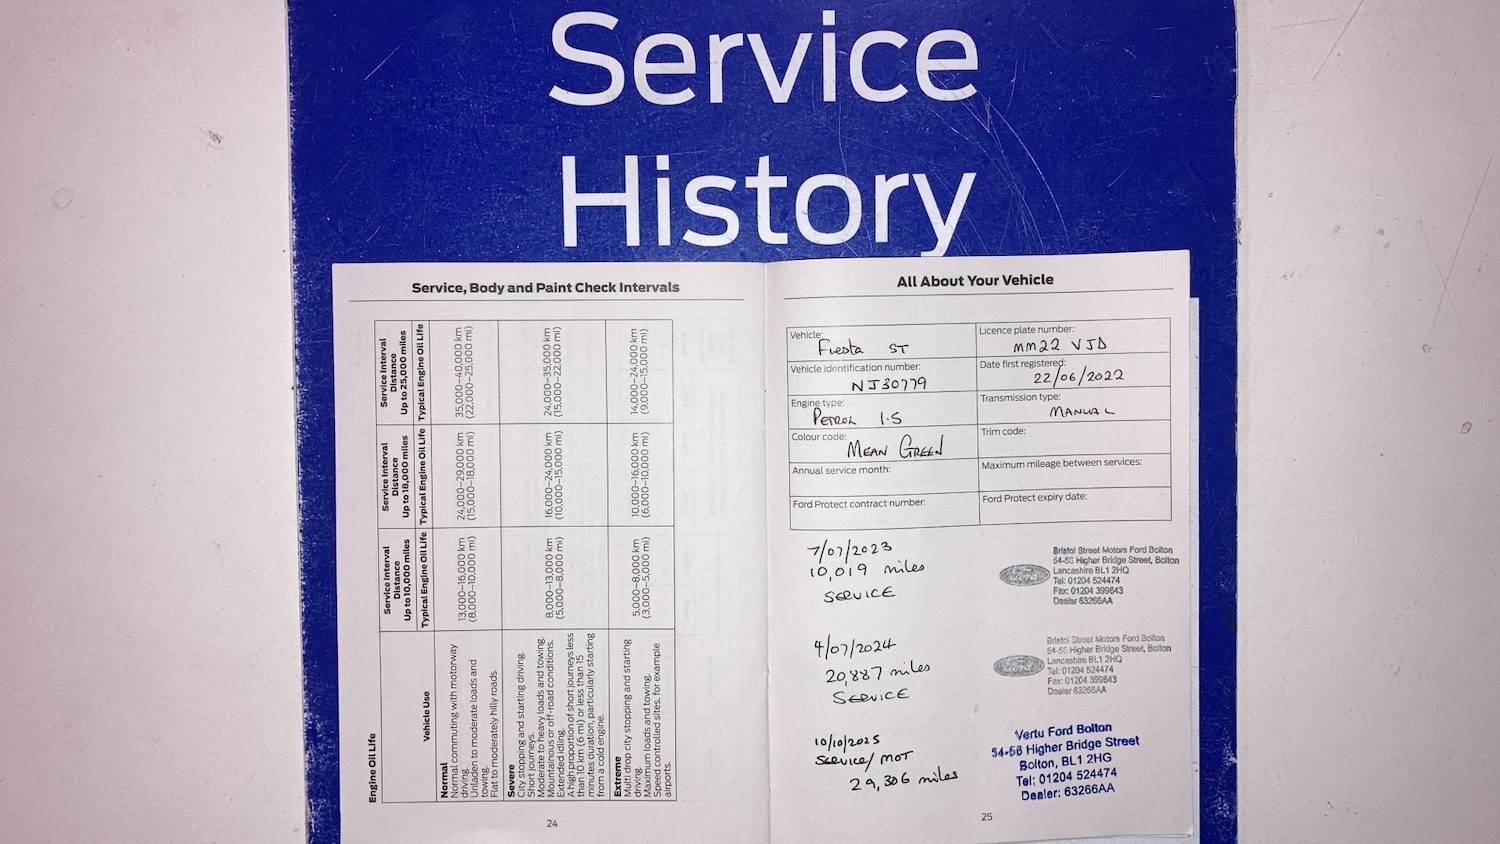 Service
History
Service, Body and Paint Check Intervals
Engine Oil Life
Vehicle Use
Service Interval
Distance
Up to 10,000 miles
Service Interval
Distance
Up to 18,000 miles
Service Interval
Distance
Up to 25,000 miles
Typical Engine Oil Life
Typical Engine Oil Life
Typical Engine Oil Life
Normal
Normal commuting with motorway
driving.
Unladen to moderate loads and
towing.
Flat to moderately hilly roads.
13,000–16,000 km
(8,000–10,000 mi)
24,000–29,000 km
(15,000–18,000 mi)
35,000–40,000 km
(22,000–25,000 mi)
Severe
City stopping and starting driving.
Short journeys.
Moderate to heavy loads and towing.
Mountainous or off-road conditions.
Extended idling.
A high proportion of short journeys less
than 10 km (6 mi) or less than 15
minutes duration, particularly starting
from a cold engine.
8,000–13,000 km
(5,000–8,000 mi)
16,000–24,000 km
(10,000–15,000 mi)
24,000–35,000 km
(15,000–22,000 mi)
Extreme
Multi drop city stopping and starting
driving.
Maximum loads and towing.
Speed controlled sites, for example
airports.
5,000–8,000 km
(3,000–5,000 mi)
10,000–16,000 km
(6,000–10,000 mi)
14,000–24,000 km
(9,000–15,000 mi)
24
All About Your Vehicle
Vehicle: Fiesta ST
Licence plate number: MM22 VJD
Vehicle identification number: NJ30779
Date first registered: 22/06/2022
Engine type: PETROL 1.5
Transmission type: MANUAL
Colour code: MEAN GREEN
Trim code:
Annual service month:
Maximum mileage between services:
Ford Protect contract number:
Ford Protect expiry date:
7/07/2023
10,019 miles
SERVICE
Ford
Bristol Street Motors Ford Bolton
54-56 Higher Bridge Street, Bolton
Lancashire BL1 2HQ
Tel: 01204 524474
Fax: 01204 399643
Dealer 63266AA
4/07/2024
20,887 miles
SERVICE
Ford
Bristol Street Motors Ford Bolton
54-56 Higher Bridge Street, Bolton
Lancashire BL1 2HQ
Tel: 01204 524474
Fax: 01204 399643
Dealer 63266AA
10/10/2025
SERVICE/MOT
29,306 miles
Vertu Ford Bolton
54-56 Higher Bridge Street
Bolton, BL1 2HG
Tel: 01204 524474
Dealer: 63266AA
25